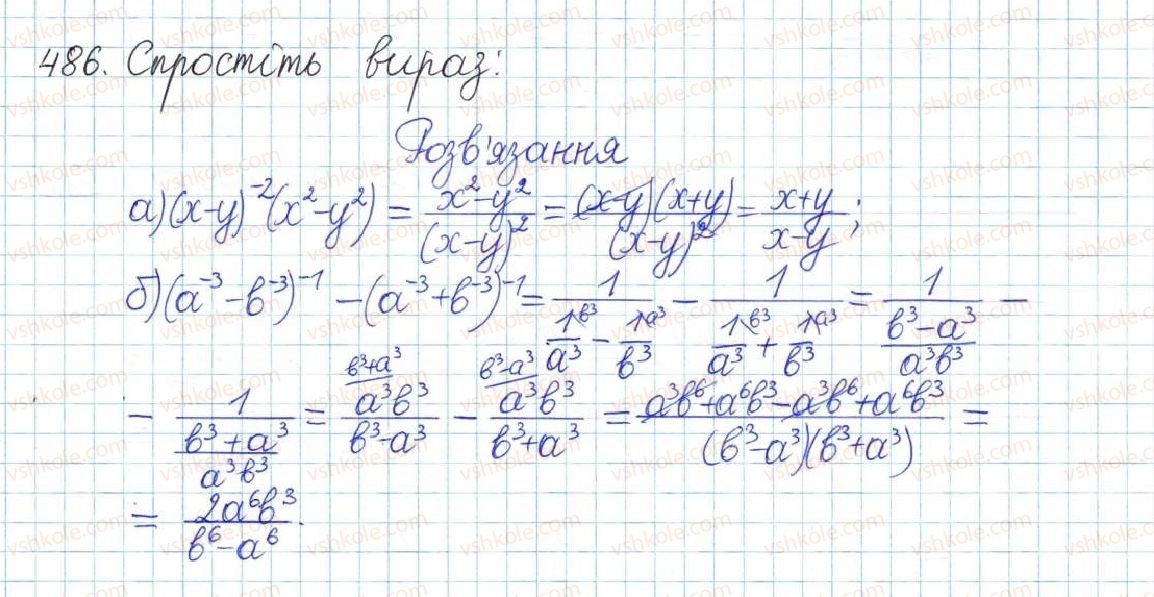 486. Спростіть вираз:
Розв'язання
а) (x-y)⁻²(x²-y²) = (x²-y²)/(x-y)² = ((x-y)(x+y))/(x-y)² = (x+y)/(x-y);
б) (a⁻³-b⁻³)⁻¹ - (a⁻³+b⁻³)⁻¹ = 1/(1\b³/a³ - 1\a³/b³) - 1/(1\b³/a³ + 1\a³/b³) = 1/((b³-a³)/(a³b³)) -
- 1/((b³+a³)/(a³b³)) = (b³+a³)/ a³b³/(b³-a³) - (b³-a³)/ a³b³/(b³+a³) = (a³b⁶+a⁶b³-a³b⁶+a⁶b³)/((b³-a³)(b³+a³)) =
= 2a⁶b³/(b⁶-a⁶).
vshkole.com